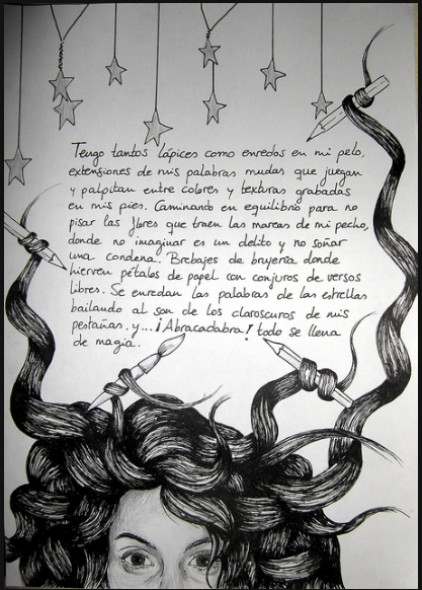 Tengo tantos lápices como enredos en mi pelo,
extensiones de mis palabras mudas que juegan
y palpitan entre colores y texturas grabadas
en mis pies. Caminando en equilibrio para no
pisar las flores que traen las mareas de mi pecho,
donde no imaginar es un delito y no soñar
una condena. Brebajes de brujería donde
hierven pétalos de papel con conjuros de versos
libres. Se enredan las palabras de las estrellas
bailando al son de los claroscuros de mis
pestañas. y... ¡Abracadabra! todo se llena
de magia.